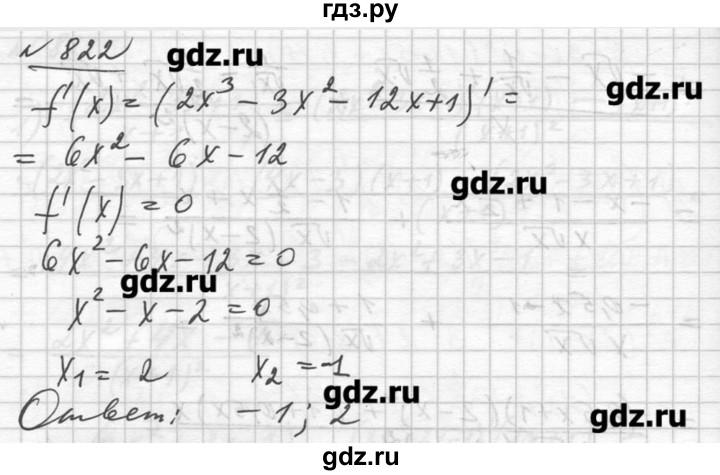 гдз.ру
№ 822
gdz.ru
f'(x) = (2x³ - 3x² - 12x+1)' =
gdz.ru
= 6x² - 6x - 12
gdz.ru
f'(x) = 0
6x² - 6x - 12 = 0
gdz.ru
x² - x - 2 = 0
x₁ = 2 x₂ = -1
gdz.ru
Ответ: - 1; 2
gdz.ru
gdz.ru